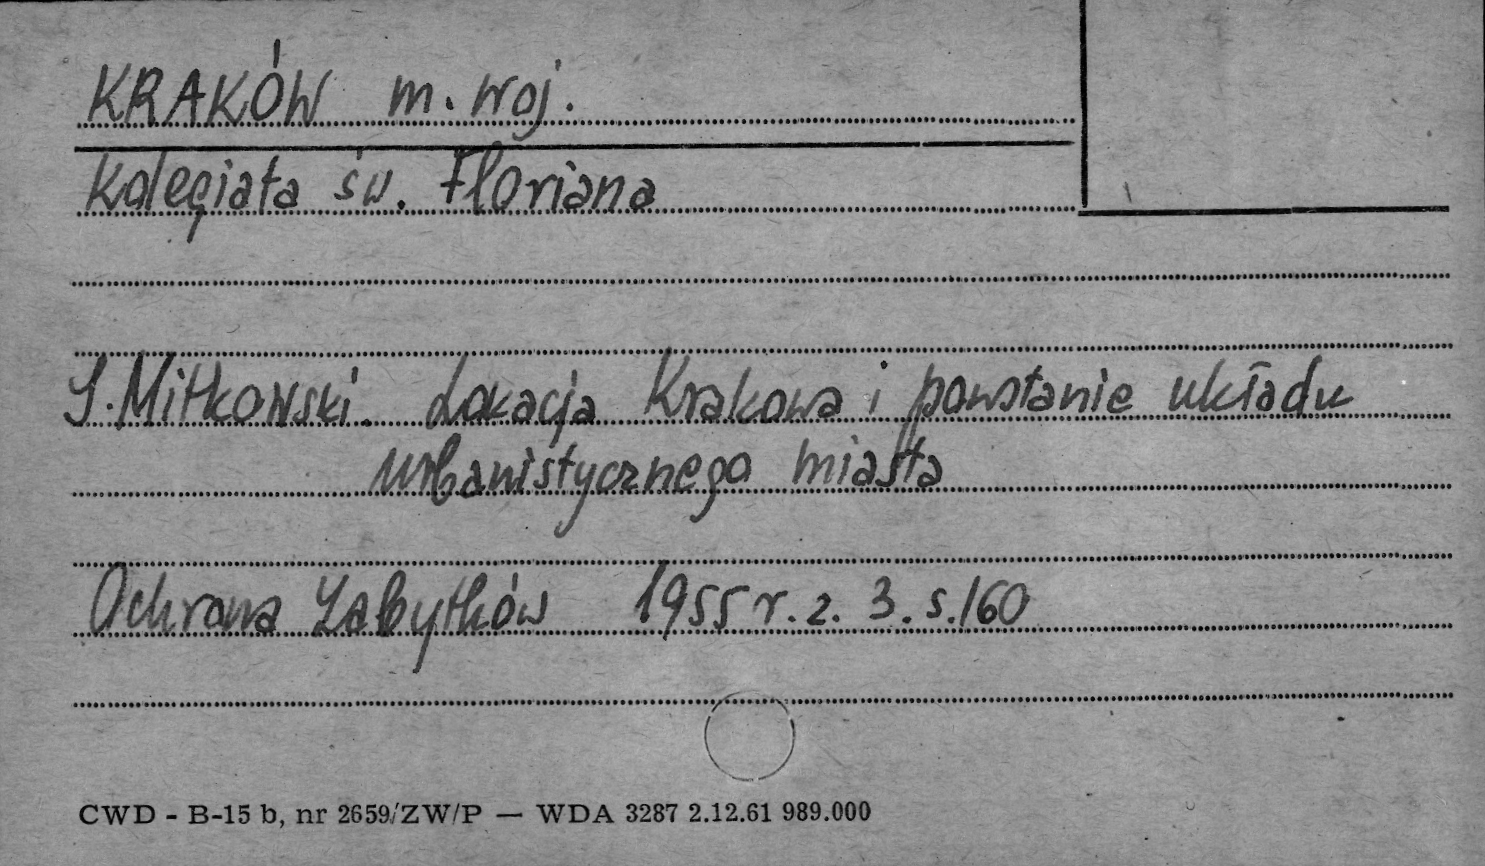 KRAKÓW m. woj.
Kolegiata św. Floriana
J. Mitkowski. Lokacja Krakowa i powstanie układu
urbanistycznego miasta
Ochrona Zabytków 1955 r. z. 3. s. 160
CWD - B-15 b, nr 2659/ZW/P — WDA 3287 2.12.61 989.000